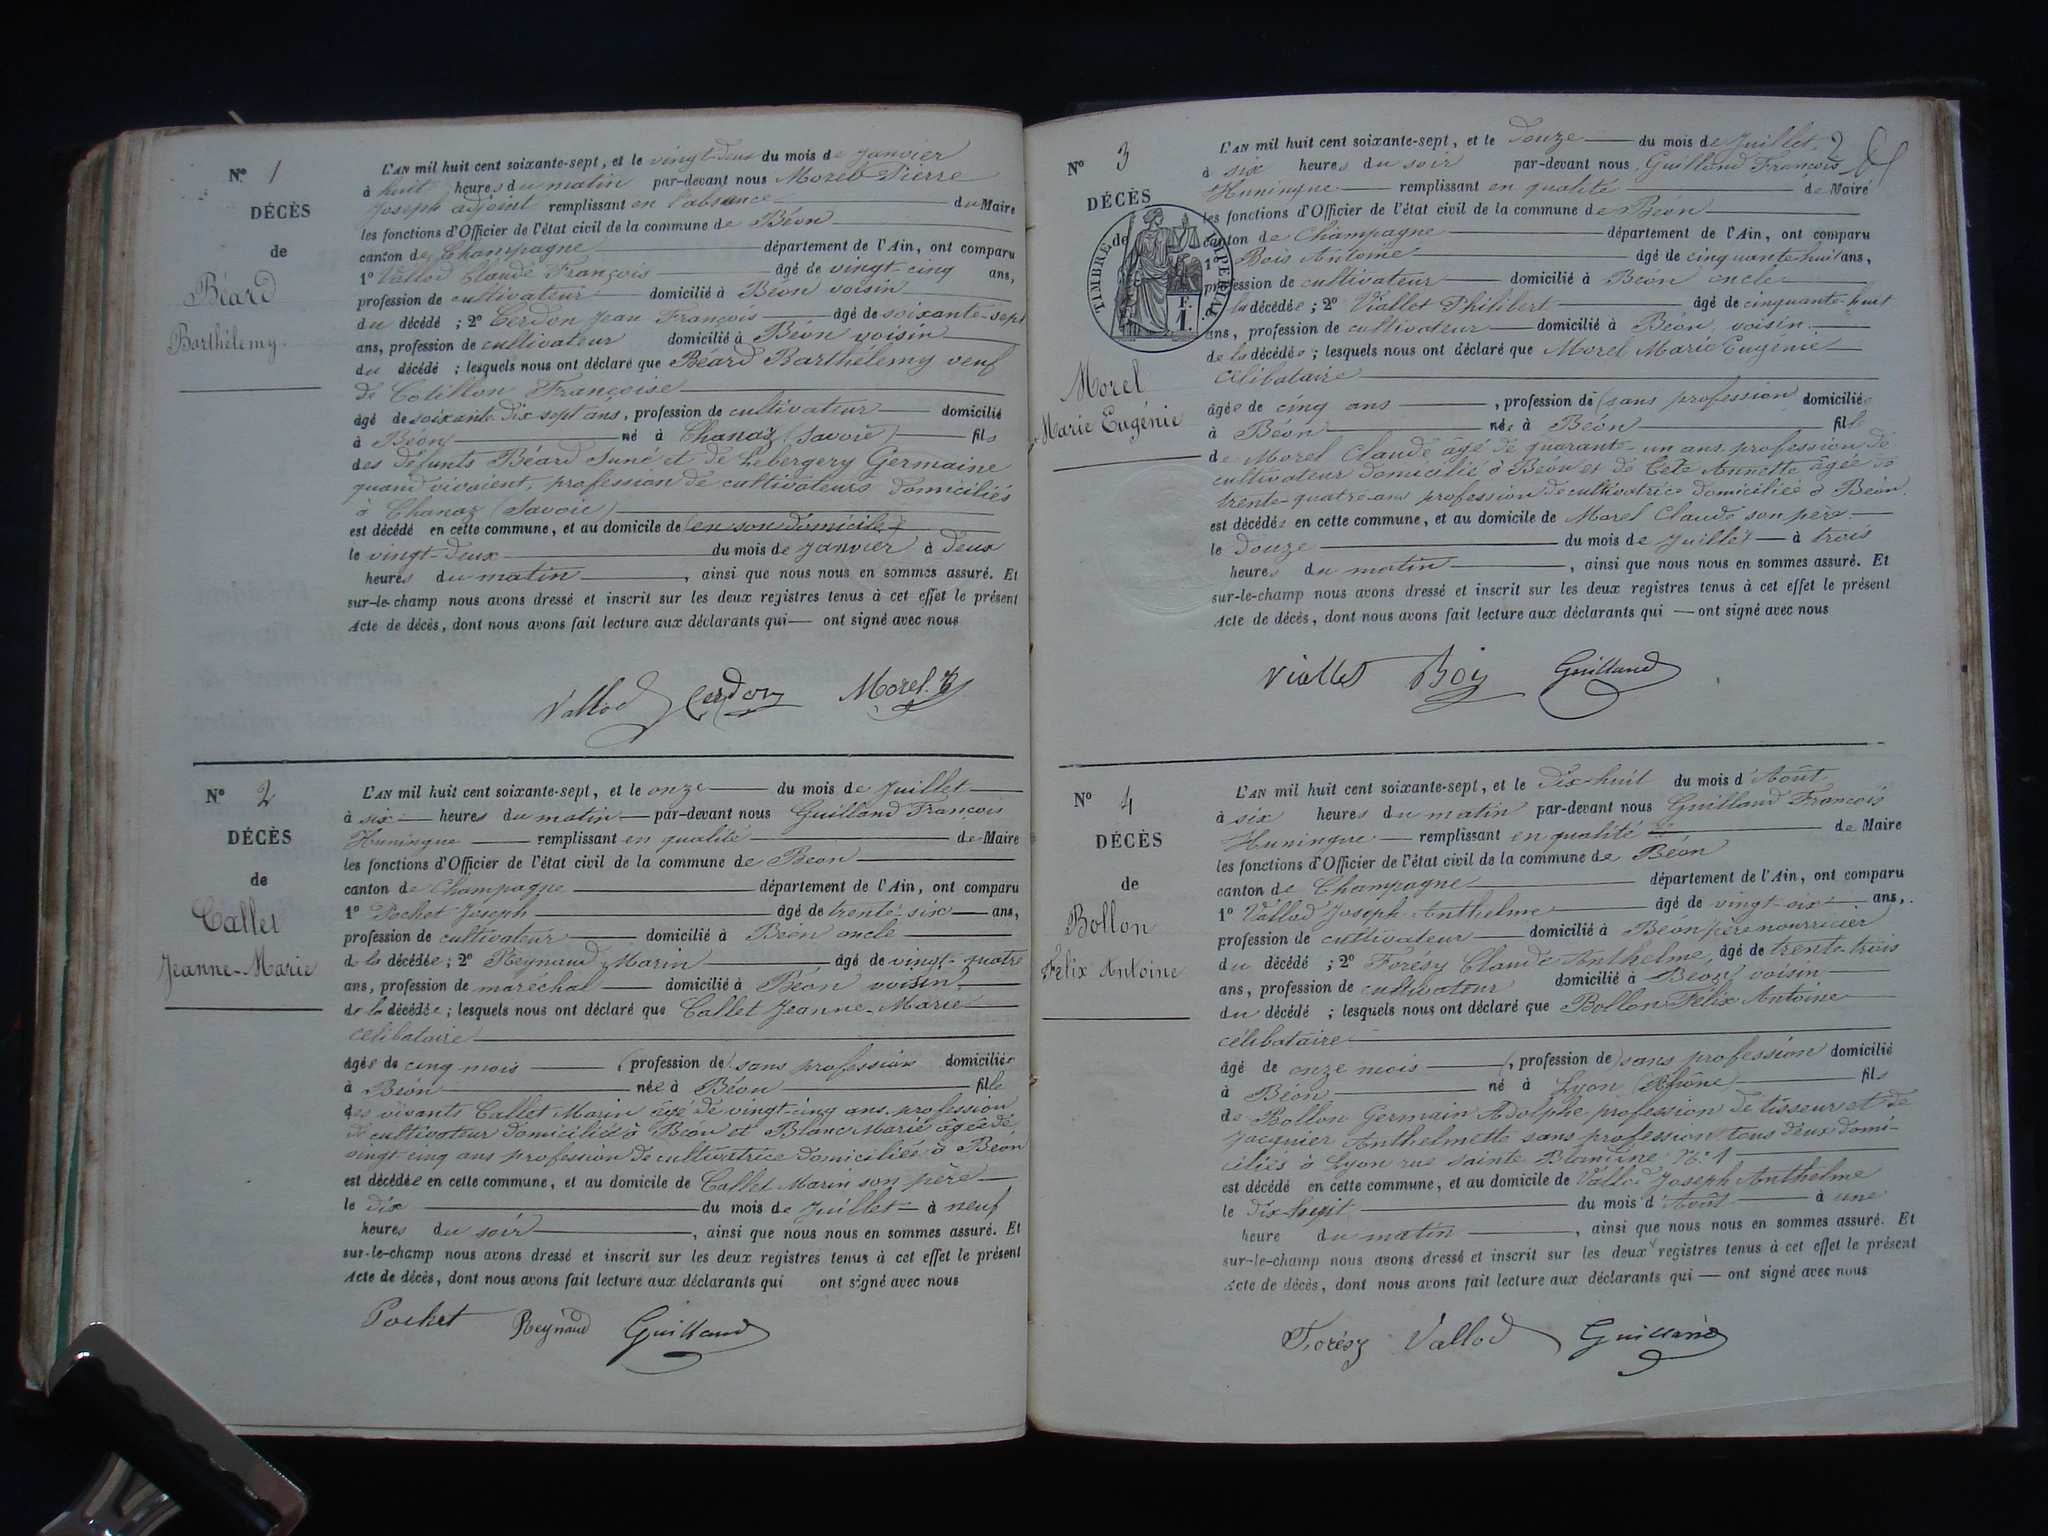 N° 1
DÉCÈS
de
Béard
Barthélemy.
L'AN mil huit cent soixante-sept, et le vingt-deux du mois de Janvier
à huit heures du matin par-devant nous Morel Pierre
Joseph adjoint remplissant en l'absence du Maire
les fonctions d'Officier de l'état civil de la commune de Béon
canton de Champagne département de l'Ain, ont comparu
1° Vallod Claude François âgé de vingt-cinq ans,
profession de cultivateur domicilié à Béon voisin
du décédé ; 2° Cerdon Jean François âgé de soixante-sept
ans, profession de cultivateur domicilié à Béon voisin
du décédé ; lesquels nous ont déclaré que Béard Barthélemy veuf
de Cotillon Françoise
âgé de soixante dix sept ans, profession de cultivateur domicilié
à Béon né à Chanaz (Savoie) fils
des défunts Béard et de Germaine
quand vivaient, profession de cultivateurs domiciliés
à Chanaz (Savoie)
est décédé en cette commune, et au domicile de (en son domicile)
le vingt-deux du mois de Janvier à deux
heures du matin, ainsi que nous nous en sommes assuré. Et
sur-le-champ nous avons dressé et inscrit sur les deux registres tenus à cet effet le présent
Acte de décès, dont nous avons fait lecture aux déclarants qui — ont signé avec nous
Vallod Cerdon Morel
N° 2
DÉCÈS
de
Callet
Jeanne-Marie
L'AN mil huit cent soixante-sept, et le onze du mois de Juillet
à six heures du matin par-devant nous Guilland François
Huningue remplissant en qualité de Maire
les fonctions d'Officier de l'état civil de la commune de Béon
canton de Champagne département de l'Ain, ont comparu
1° Pochet Joseph âgé de trente-six ans,
profession de cultivateur domicilié à Béon oncle
de la décédée ; 2° Reynaud Marin âgé de vingt-quatre
ans, profession de maréchal domicilié à Béon voisin
de la décédée ; lesquels nous ont déclaré que Callet Jeanne-Marie
célibataire
âgée de cinq mois (profession de) sans profession domiciliée
à Béon née à Béon fille
des vivants Callet Marin âgé de vingt-cinq ans profession
de cultivateur domicilié à Béon et Blanc Marie âgée de
vingt-cinq ans profession de cultivatrice domiciliée à Béon
est décédée en cette commune, et au domicile de Callet Marin son père
le dix du mois de Juillet à neuf
heures du soir, ainsi que nous nous en sommes assuré. Et
sur-le-champ nous avons dressé et inscrit sur les deux registres tenus à cet effet le présent
Acte de décès, dont nous avons fait lecture aux déclarants qui ont signé avec nous
Pochet Reynaud Guilland
2
N° 3
DÉCÈS
de
TIMBRE IMPÉRIAL
F.
1.
Morel
Marie Eugénie
L'AN mil huit cent soixante-sept, et le douze du mois de Juillet
à six heures du soir par-devant nous Guilland François
Huningue remplissant en qualité de Maire
les fonctions d'Officier de l'état civil de la commune de Béon
canton de Champagne département de l'Ain, ont comparu
1° Bois Antoine âgé de cinquante-huit ans,
profession de cultivateur domicilié à Béon oncle
de la décédée ; 2° Viallet Philibert âgé de cinquante-huit
ans, profession de cultivateur domicilié à Béon, voisin
de la décédée ; lesquels nous ont déclaré que Morel Marie Eugénie
célibataire
âgée de cinq ans, profession de (sans profession domiciliée
à Béon née à Béon fille
de Morel Claude âgé de quarante-un ans profession de
cultivateur domicilié à Béon et de Annette âgée de
trente-quatre ans profession de cultivatrice domiciliée à Béon.
est décédée en cette commune, et au domicile de Morel Claude son père
le douze du mois de Juillet à trois
heures du matin, ainsi que nous nous en sommes assuré. Et
sur-le-champ nous avons dressé et inscrit sur les deux registres tenus à cet effet le présent
Acte de décès, dont nous avons fait lecture aux déclarants qui — ont signé avec nous
Viallet Boy Guilland
N° 4
DÉCÈS
de
Bollon
Félix Antoine
L'AN mil huit cent soixante-sept, et le dix-huit du mois d'Août
à six heures du matin par-devant nous Guilland François
Huningue remplissant en qualité de Maire
les fonctions d'Officier de l'état civil de la commune de Béon
canton de Champagne département de l'Ain, ont comparu
1° Vallod Joseph Anthelme âgé de vingt-six ans,
profession de cultivateur domicilié à Béon père nourricier
du décédé ; 2° Forésy Claude Anthelme, âgé de trente-trois
ans, profession de cultivateur domicilié à Béon voisin
du décédé ; lesquels nous ont déclaré que Bollon Félix Antoine
célibataire
âgé de onze mois (, profession de) sans profession domicilié
à Béon né à Lyon (Rhône fils
de Bollon Germain Adolphe profession de tisseur et de
Jacquier Anthelmette sans profession tous deux domi-
ciliés à Lyon rue sainte Blandine N° 1
est décédé en cette commune, et au domicile de Vallod Joseph Anthelme
le dix-sept du mois d'Août à une
heure du matin, ainsi que nous nous en sommes assuré. Et
sur-le-champ nous avons dressé et inscrit sur les deux registres tenus à cet effet le présent
Acte de décès, dont nous avons fait lecture aux déclarants qui — ont signé avec nous
Forésy Vallod Guilland